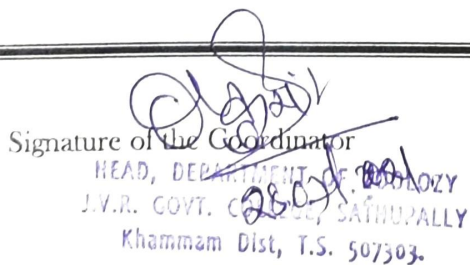 Signature of the Coordinator
HEAD, DEPARTMENT OF ZOOLOZY
J.V.R. GOVT. COLLEGE, SATHUPALLY
Khammam Dist, T.S. 507303.